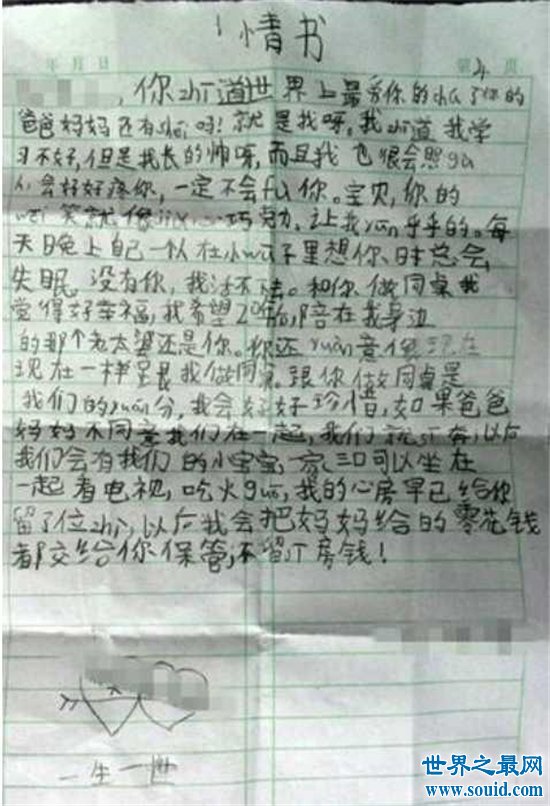 情书
年 月 日 第 页
，你zhī道世界上最爱你的chú了你的
爸爸妈妈还有shéi吗！就是我呀，我zhī道我学
习不好，但是我长的帅呀，而且我也很会照gù
人会好好疼你，一定不会fù你。宝贝，你的
笑就像 巧克力，让我yūn乎乎的。每
天晚上自己一个人在小wū子里想你，时总会
失眠，没有你，我活不下去。和你做同桌我
觉得好幸福，我希望20年后，陪在我身边
的那个老太婆还是你。你还yuàn意像现在
现在一样呈跟我做同桌。跟你做同桌是
我们的yuán分，我会好好珍惜，如果爸爸
妈妈不同意我们在一起，我们就 奔，以后
我们会有我们的小宝宝，一家三口可以坐在
一起看电视，吃火guō，我的心房早已给你
留了位zhì，以后我会把妈妈给的零花钱
都交给你保管，不留 房钱！
一生一世
世界之最网
www.souid.com